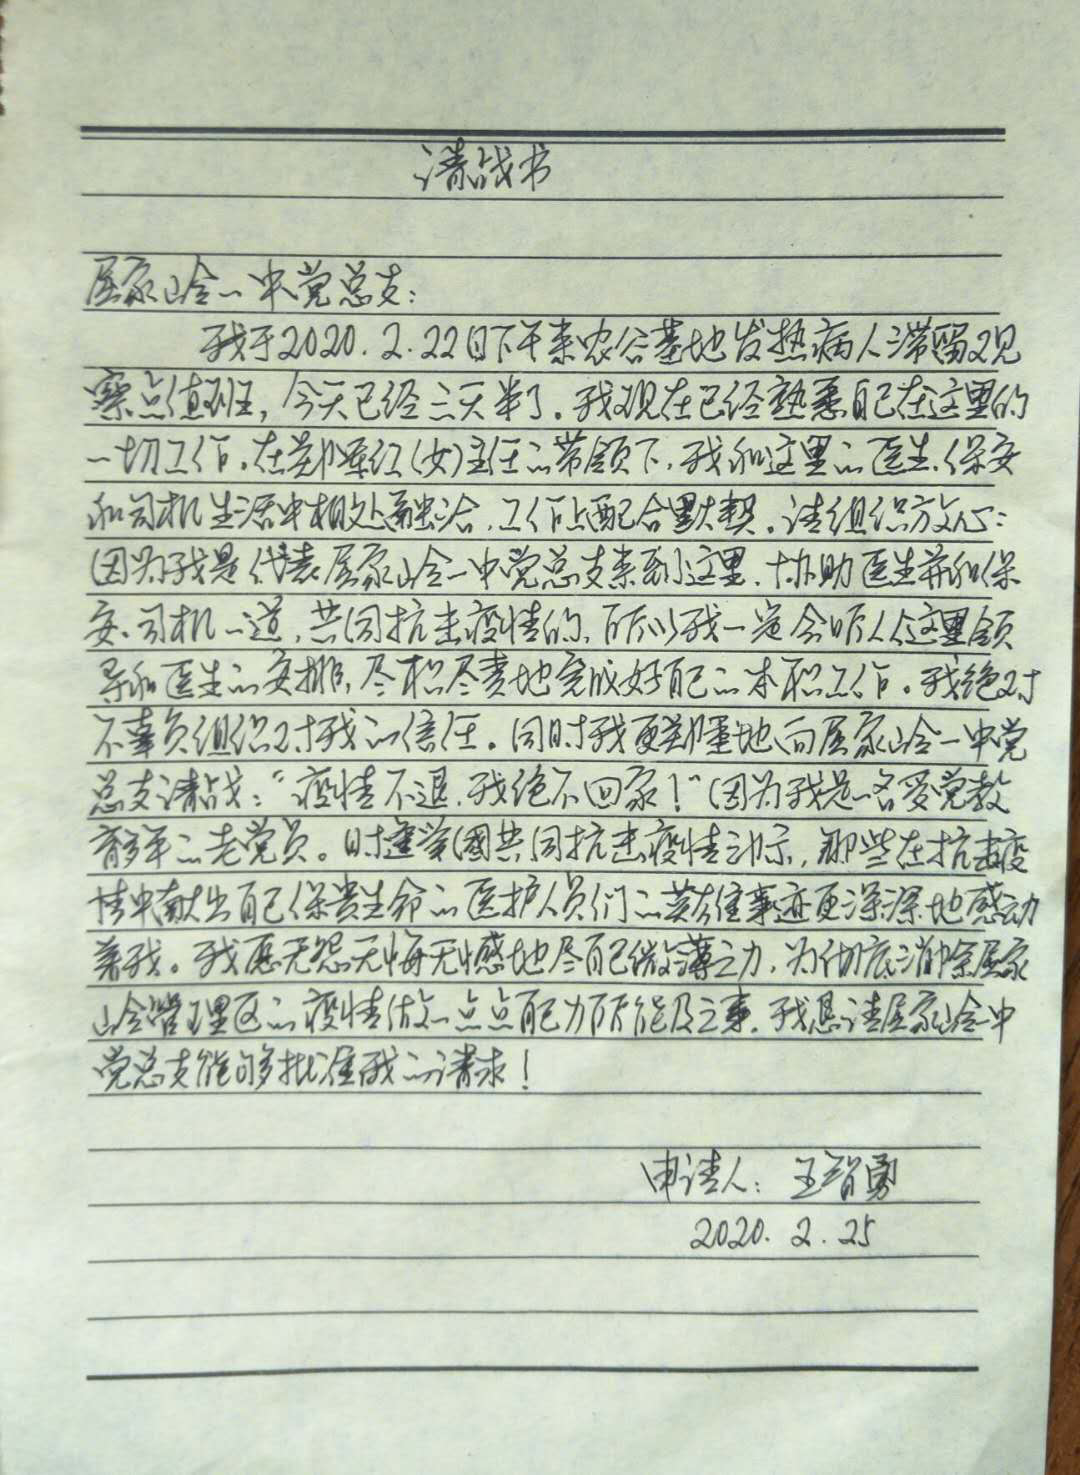 请战书
屈家岭一中党总支：
我于2020.2.22日下午来农谷基地发热病人滞留观
察点值班，今天已经三天半了。我现在已经熟悉自己在这里的
一切工作。在郑军红(女)主任的带领下，我和这里的医生、保安
和司机生活中相处融洽，工作上配合默契。请组织放心：
因为我是代表屈家岭一中党总支来到这里，协助医生并和保
安、司机一道，共同抗击疫情的，所以我一定会听从这里领
导和医生的安排，尽职尽责地完成好自己的本职工作。我绝对
不辜负组织对我的信任。同时我更郑重地向屈家岭一中党
总支请战："疫情不退，我绝不回家！"因为我是一名受党教
育多年的老党员。时逢举国共同抗击疫情之际，那些在抗击疫
情中献出自己保贵生命的医护人员们的英雄事迹更深深地感动
着我。我愿无怨无悔无憾地尽自己微薄之力，为彻底消除屈家
岭管理区的疫情做一点点自己力所能及之事。我恳请屈家岭一中
党总支能够批准我的请求！
申请人：王智勇
2020.2.25